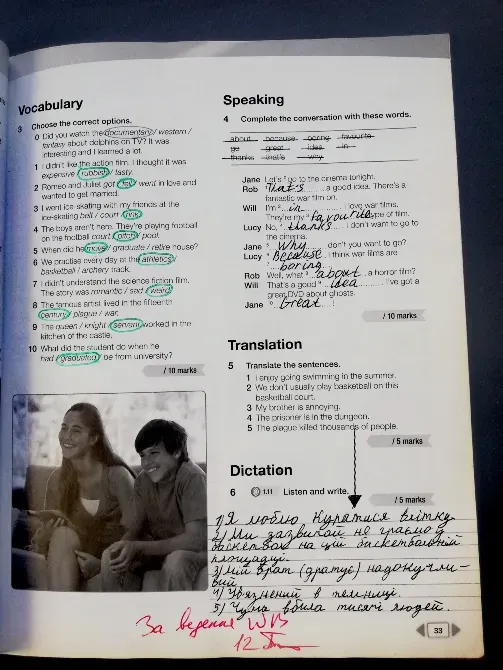 Vocabulary
3 Choose the correct options.
0 Did you watch the documentary / western /
fantasy about dolphins on TV? It was
interesting and I learned a lot.
1 I didn't like the action film. I thought it was
expensive / rubbish / tasty.
2 Romeo and Juliet got / fell / went in love and
wanted to get married.
3 I went ice-skating with my friends at the
ice-skating bell / court / rink.
4 The boys aren't here. They're playing football
on the football court / pitch / pool.
5 When did he move / graduate / retire house?
6 We practise every day at the athletics /
basketball / archery track.
7 I didn't understand the science fiction film.
The story was romantic / sad / weird.
8 The famous artist lived in the fifteenth
century / plague / war.
9 The queen / knight / servant worked in the
kitchen of the castle.
10 What did the student do when he
had / graduated / be from university?
/ 10 marks
Speaking
4 Complete the conversation with these words.
about because boring favourite
go great idea in
thanks that's why
Jane Let's 0 go to the cinema tonight.
Rob 1 That's a good idea. There's a
fantastic war film on.
Will I'm 2 in. I love war films.
They're my 3 favourite type of film.
Lucy No, 4 thanks. I don't want to go to
the cinema.
Jane 5 Why don't you want to go?
Lucy 6 Because I think war films are
7 boring.
Rob Well, what 8 about a horror film?
Will That's a good 9 idea. I've got a
great DVD about ghosts.
Jane 10 Great!
/ 10 marks
Translation
5 Translate the sentences.
1 I enjoy going swimming in the summer.
2 We don't usually play basketball on this
basketball court.
3 My brother is annoying.
4 The prisoner is in the dungeon.
5 The plague killed thousands of people.
/ 5 marks
Dictation
6 1.11 Listen and write.
/ 5 marks
1) Я люблю купатися влітку
2) Ми зазвичай не граємо у
баскетбол на цій баскетбольній
площадці.
3) Мій брат (дратує) надокучли-
вий
4) Ув'язнений в темниці.
5) Чума вбила тисячі людей.
За ведення WB
12
33